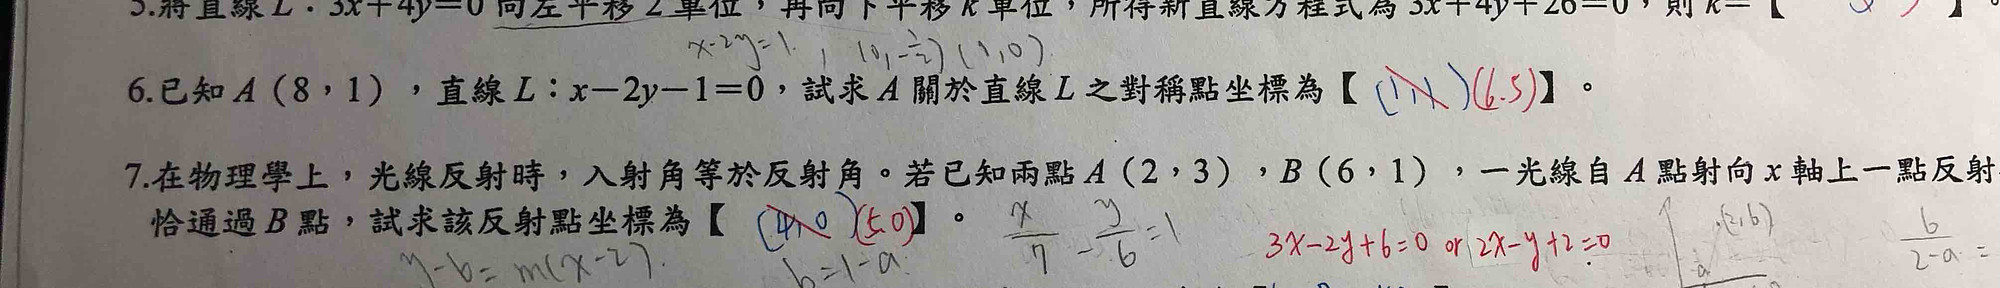 5.將直線 L：3x＋4y＝0 向左平移 2 單位，再向下平移 k 單位，所得新直線方程式為 3x＋4y＋26＝0，則 k＝【 】。
x-2y=1. , (0,-1/2) (1,0)
6.已知 A（8，1），直線 L：x－2y－1＝0，試求 A 關於直線 L 之對稱點坐標為【 (1,1) (6.5)】。
7.在物理學上，光線反射時，入射角等於反射角。若已知兩點 A（2，3），B（6，1），一光線自 A 點射向 x 軸上一點反射
恰通過 B 點，試求該反射點坐標為【 (4,0) (5.0)】。 x/7 - y/6 = 1
3x-2y+6=0 or 2x-y+2=0
(2,6)
a
6/2-a =
y-6=m(x-2).
b=1-a.